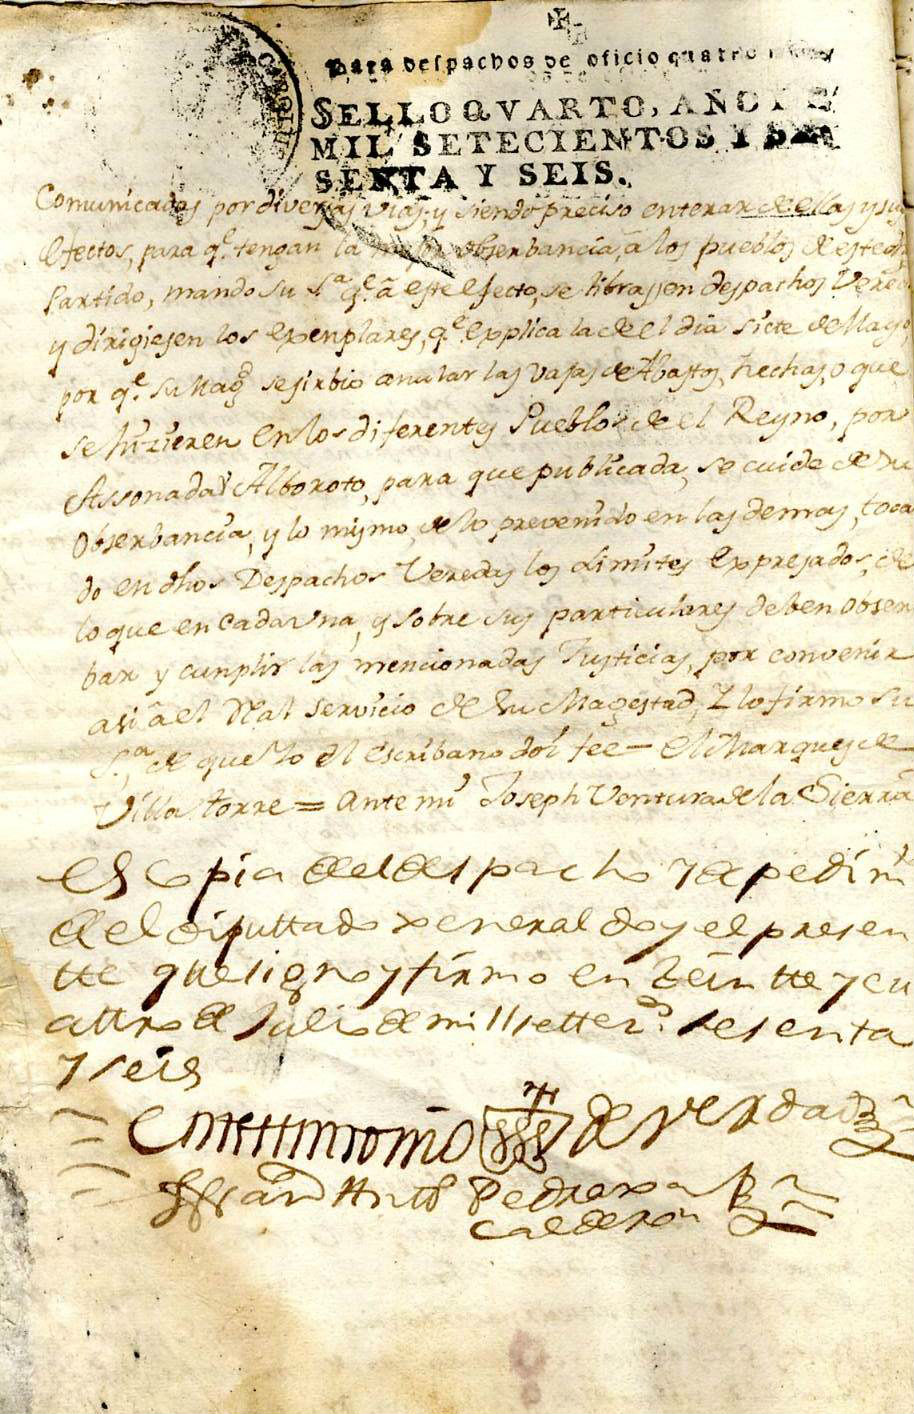 Para despachos de oficio quatro
SELLO QVARTO, AÑO DE
MIL SETECIENTOS Y SE
SENTA Y SEIS.
Comunicadas por diversas vias, y siendo preciso enterar de ellas y sus
efectos, para q.e tengan la obserbancia, â los pueblos de este
Partido, mando Su S.a q.e â este efecto, se librassen despachos
y dirigiesen los exenplares, q.e explica la de el dia siete de Mayo,
por q.e Su Mag.d se sirbio anular las vajas de Abastos, hechas, o que
se hizieren en los diferentes Pueblos de el Reyno, por
Assonada y Alboroto, para que publicada, se cuide de su
Obserbancia, y lo mismo, de lo prevenido en las demas, toca
do en dhos Despachos Veredas los Limites expresados, de
lo que en cada vna, y sobre sus particulares deben obser
bar y cunplir las mencionadas Justicias, por convenir
asi â el Real servicio de Su Magestad, Y lo firmo Su
S.a de que Yo el Escribano doi fee = El Marques de
Villa torre = Ante mi Joseph Ventura de la Sierra
Es Copia del despacho y de pedim.to
de el diputtado xeneral doy el presen
tte que signo y firmo en beintte y cu
attro de Julio de mill settez.s sesenta
y seis
En testtimonio de verdad
Fran.co Antt.o Pedraxa
Calderon